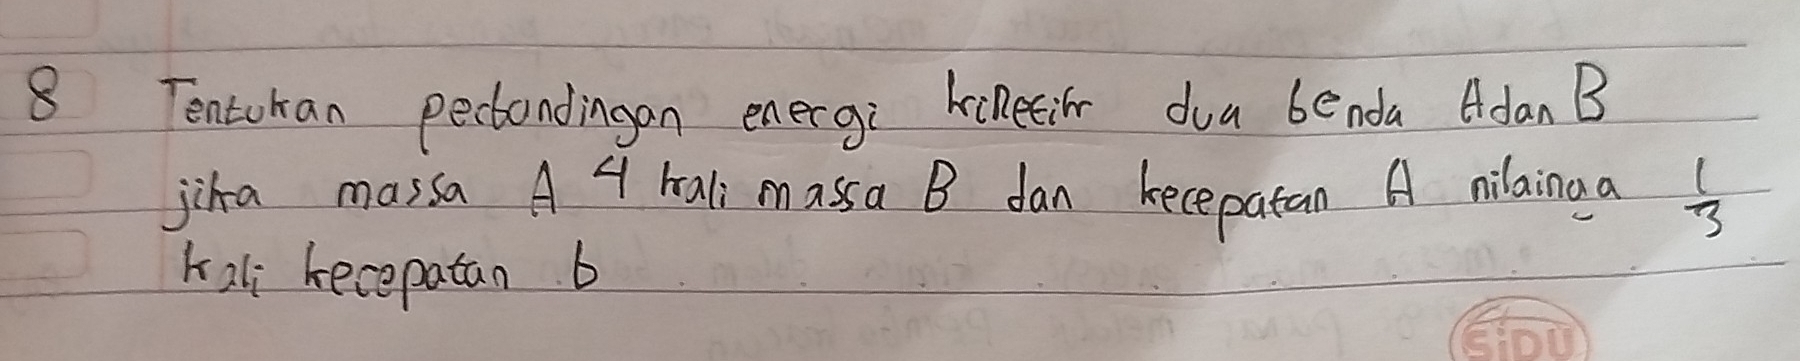 8 Tentukan perbandingan energi kinetik dua benda A dan B
jika massa A 4 kali massa B dan kecepatan A nilainya 1/3
kali kecepatan b
SiDU